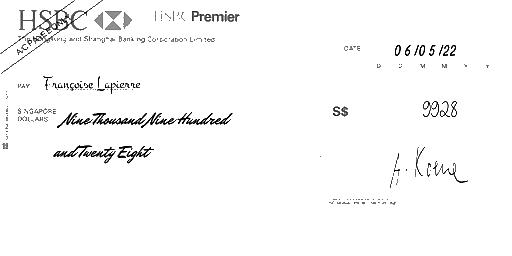 HSBC HSBC Premier
The Hongkong and Shanghai Banking Corporation Limited
DATE 06/05/22
D D M M Y Y
PAY Françoise Lapierre
SINGAPORE
DOLLARS Nine Thousand Nine Hundred
and Twenty Eight
S$ 9928
A. Kone